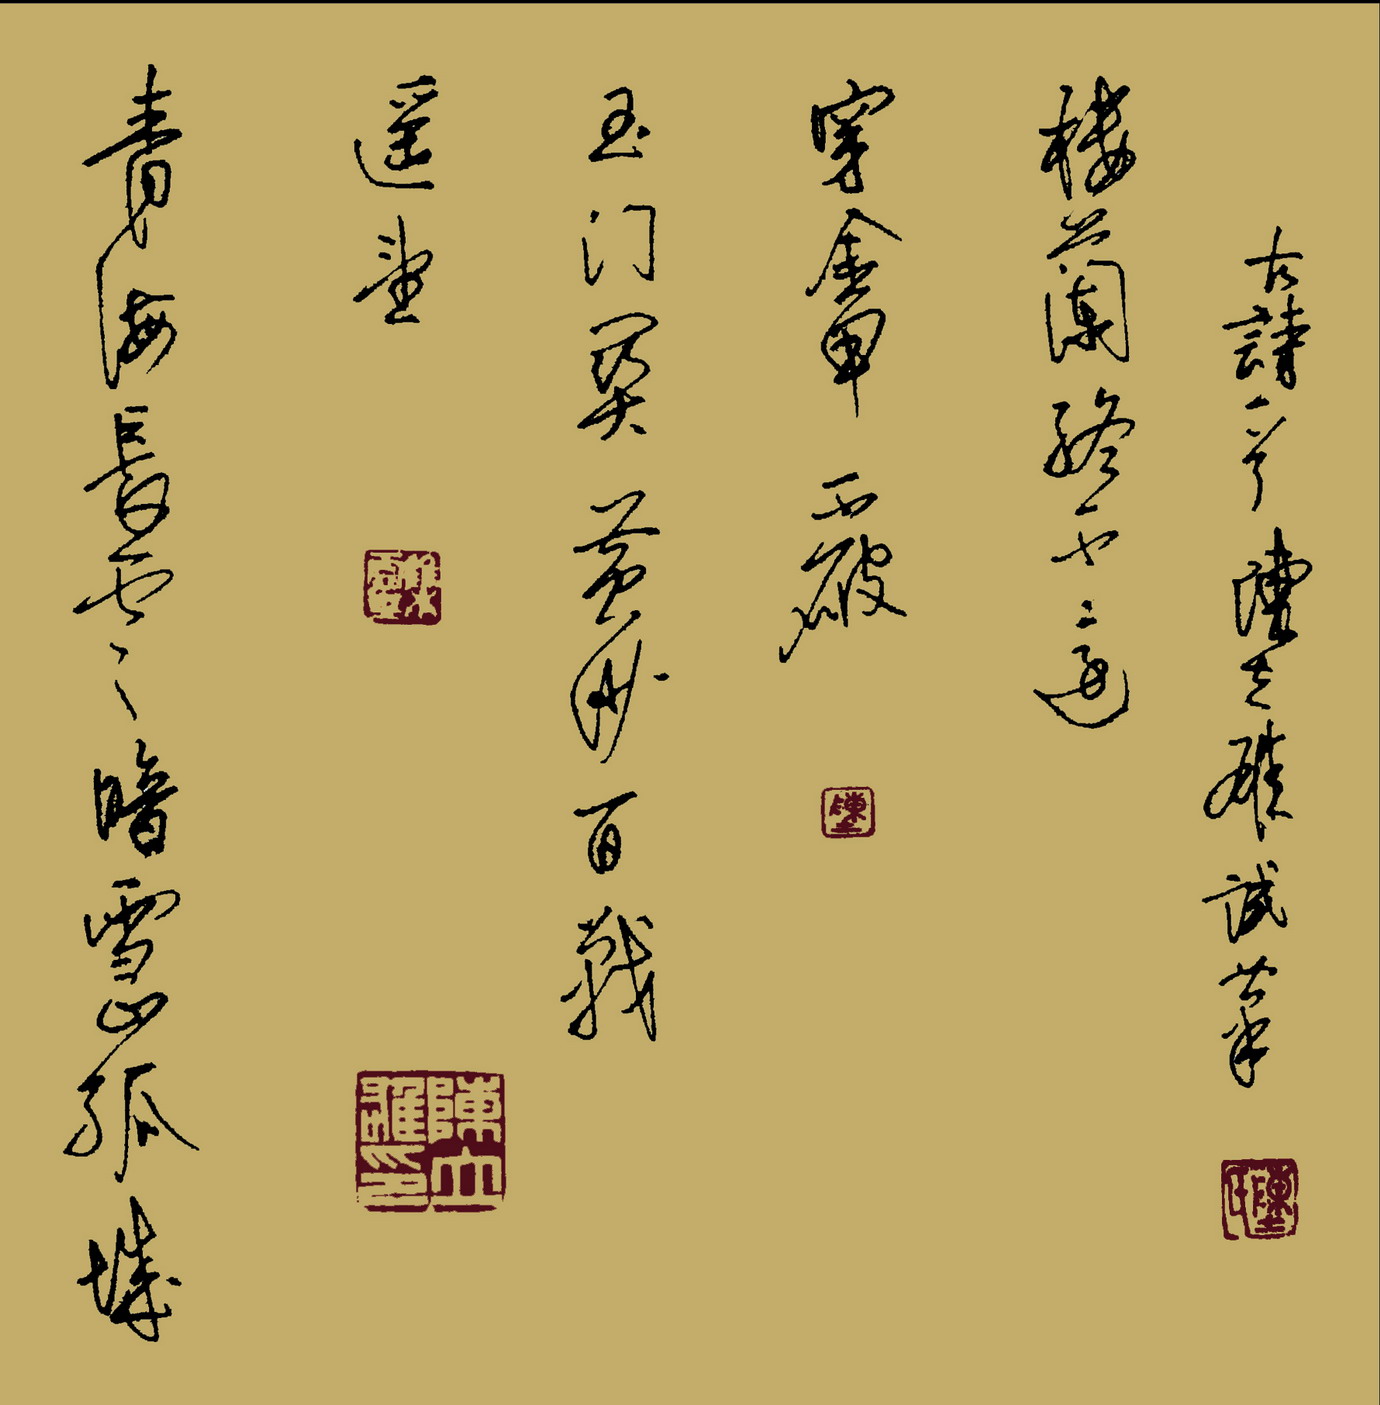 青海長雲暗雪山孤城
遥望
玉门関黄沙百戰
穿金甲不破
樓蘭終不還
古詩一首 陳 試筆
陳